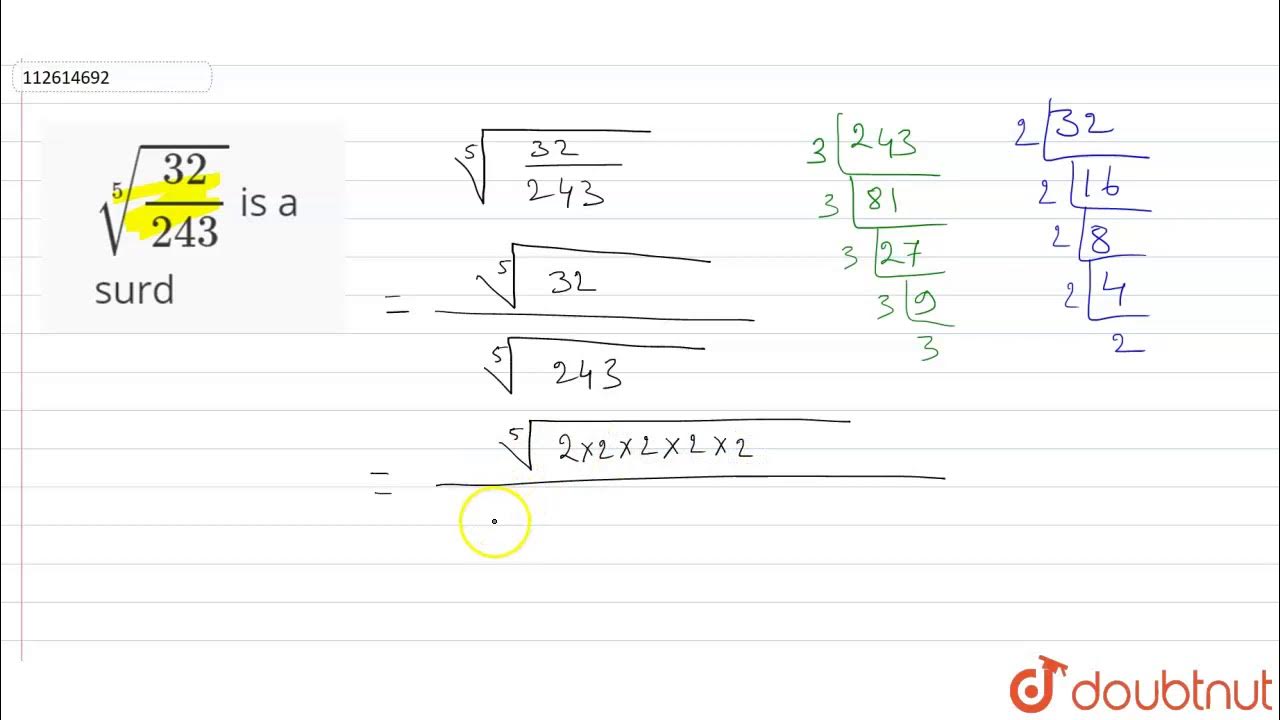 112614692
⁵√(32/243) is a
surd
⁵√(32/243)
= ⁵√32 / ⁵√243
= ⁵√(2×2×2×2×2)
3 | 243
3 | 81
3 | 27
3 | 9
3
2 | 32
2 | 16
2 | 8
2 | 4
2
doubtnut